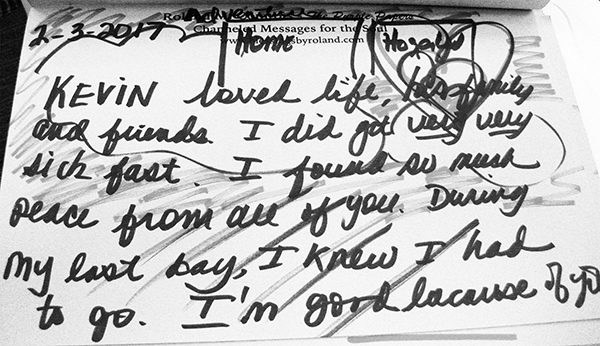 Channeled Messages for the Soul
2-3-2017 Home Hospital
KEVIN loved life, his family
and friends. I did got very very
sick fast. I found so much
peace from all of you. During
My last day, I knew I had
to go. I'm good lacause of you